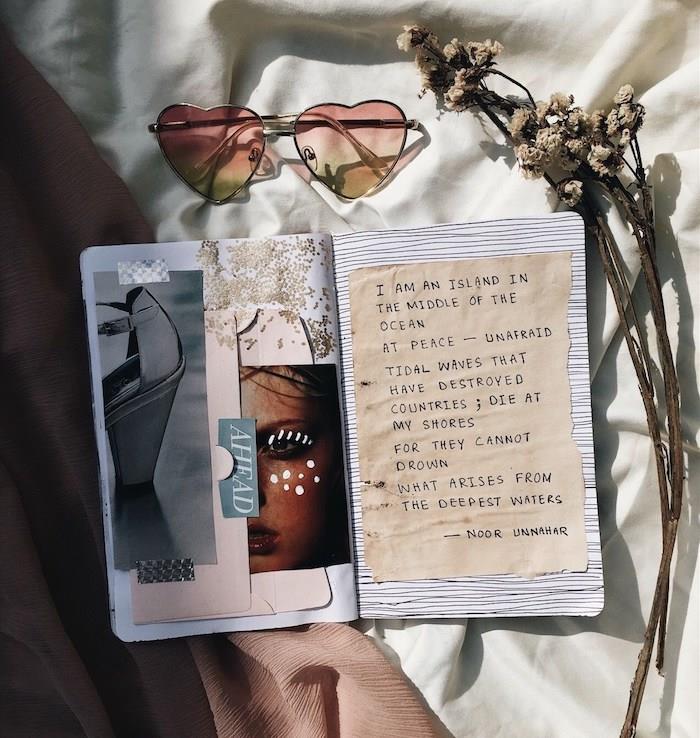 AHEAD
I AM AN ISLAND IN
THE MIDDLE OF THE
OCEAN
AT PEACE — UNAFRAID
TIDAL WAVES THAT
HAVE DESTROYED
COUNTRIES ; DIE AT
MY SHORES
FOR THEY CANNOT
DROWN
WHAT ARISES FROM
THE DEEPEST WATERS
— NOOR UNNAHAR